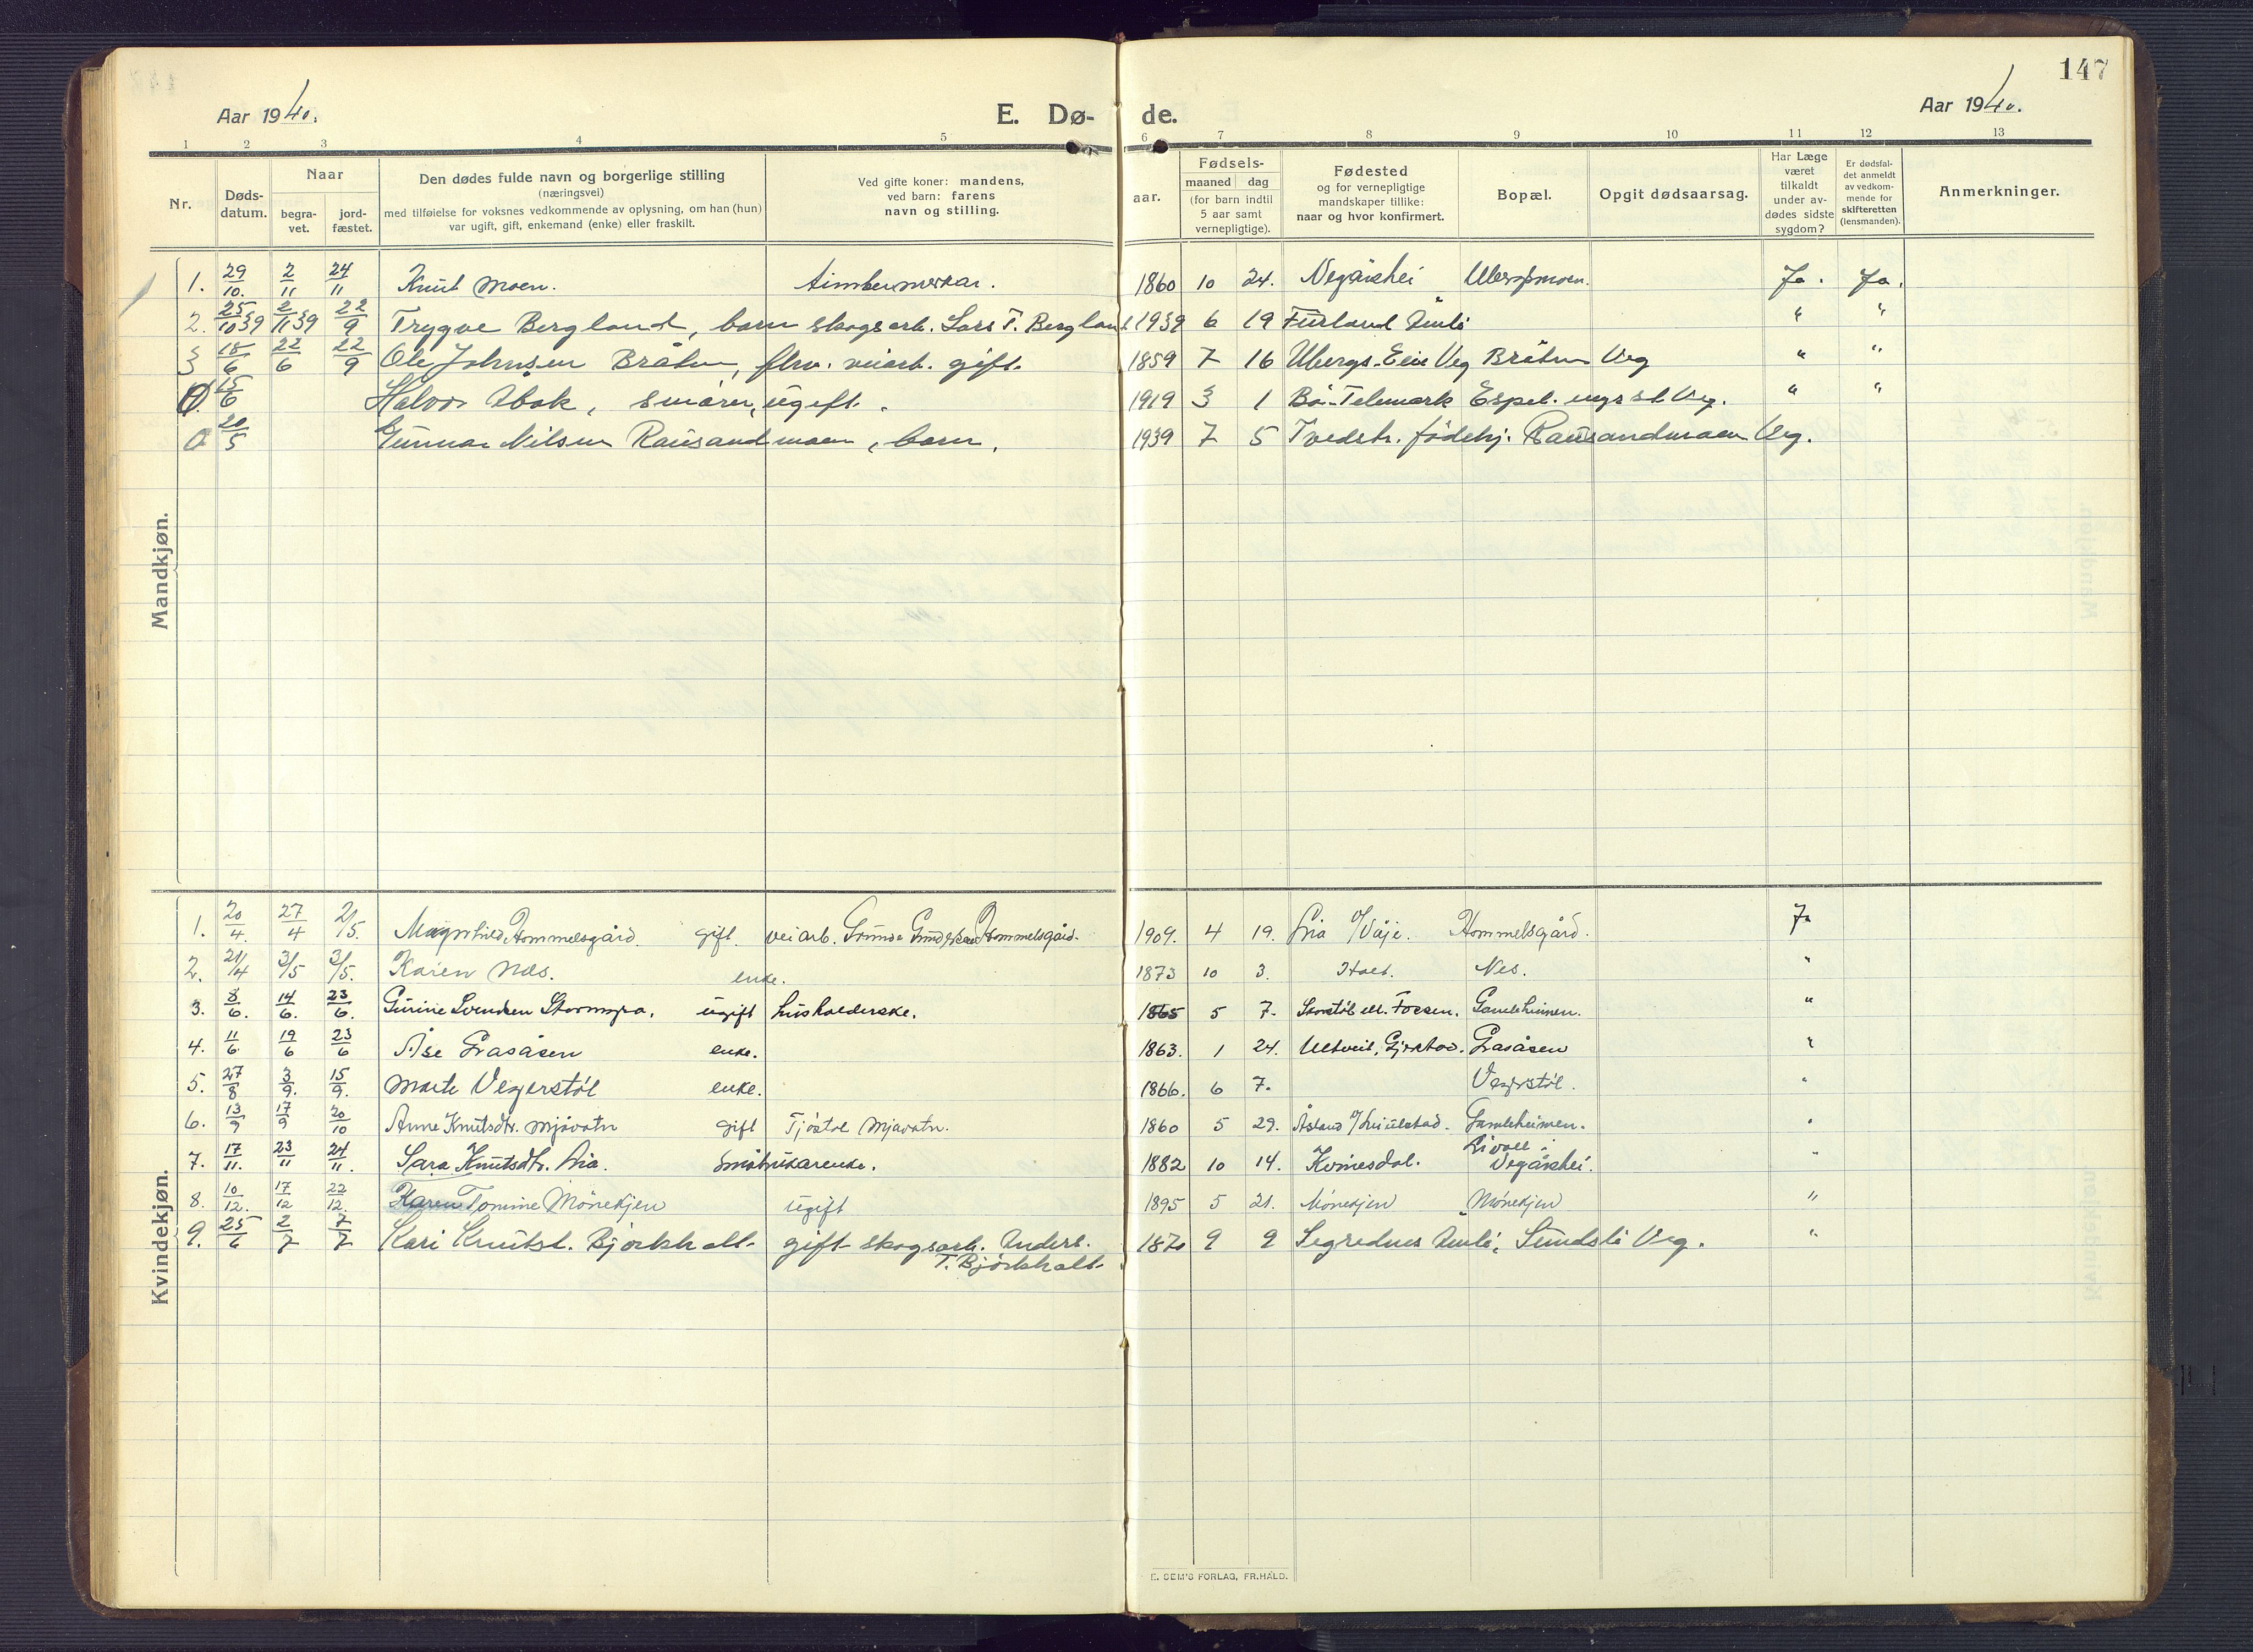 147
Aar 1940.
E. Dø-
de.
Aar 1940.
1 2 3 4 5 6 7 8 9 10 11 12 13
Nr.
Døds-
datum.
Naar
begra-
vet.
jord-
fæstet.
Den dødes fulde navn og borgerlige stilling
(næringsvei)
med tilføielse for voksnes vedkommende av oplysning, om han (hun)
var ugift, gift, enkemand (enke) eller fraskilt.
Ved gifte koner: mandens,
ved barn: farens
navn og stilling.
aar.
Fødsels-
maaned dag
(for barn indtil
5 aar samt
vernepligtige).
Fødested
og for vernepligtige
mandskaper tillike:
naar og hvor konfirmert.
Bopæl.
Opgit dødsaarsag.
Har Læge
været
tilkaldt
under av-
dødes sidste
sygdom?
Er dødsfal-
det anmeldt
av vedkom-
mende for
skifteretten
(lensmanden).
Anmerkninger.
Mandkjøn.
1. 29/10. 2/11 24/11 Knut Moen. timbermerkar. 1860 10 24. Vegårshei Ja. Ja.
2. 25/10 39 2/11 39 22/9 Trygve Bergland, barn skogsarb. Lars T. Bergland 1939 6 19 Furland Åmli " "
3 18/6 22/6 22/9 Ole Johnsen Bråten, fhv. veiarb. gift. 1859 7 16 Ubergs. Eie Veg Bråten Veg " "
0 15/6 Halvor Åbok, smører, ugift. 1919 3 1 Bø-Telemark Espel. Veg. " "
0 20/5 Gunnar Nilsen Rausandmoen, barn, 1939 7 5 Tvedstr. fødehj. Rausandmoen Veg.
Kvindekjøn.
1. 20/4. 27/4 2/5. Magnhild Hommelsgård. gift. veiarb. Hommelsgård. 1909. 4 19. Lia Våje. Hommelsgård. Ja
2. 21/4 3/5 3/5. Karen Næs. enke. 1873 10 3. Holt. Nes. "
3. 8/6. 14/6. 23/6. Gurine Svendsen Stormyra. ugift husholderske. 1865 5 7. Gamleheimen. "
4. 11/6 19/6 23/6 Åse Grasåsen enke. 1863. 1 24. Ulltveit, Gjerstad. Grasåsen "
5. 27/8 3/9. 15/9. Marte Vegerstøl enke. 1866. 6 7. Vegerstøl. "
6. 13/9 17/9 20/10 Anne Knutsdtr. Mjåvatn gift Tjøstol Mjåvatn. 1860 5 29. Åsland Gamleheimen. "
7. 17/11. 23/11 24/11. Sara Knutsdtr. Lia. Småbrukarenke. 1882 10 14. Kvinesdal. Livoll i
Vegårshei. "
8. 10/12. 17/12 22/12. Karen Tomine Mønekjen ugift 1895 5 21. Mønekjen Mønekjen "
9. 25/6 2/7 7/7 Kari Knutsd. Bjørkholt gift skogsarb. Anders.
T. Bjørkholt 1870 9 9 Segrednes Åmli, Sundsli Veg. "
E. SEM'S FORLAG, FR.HALD.